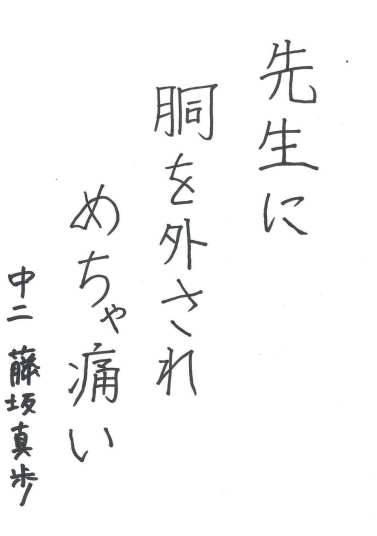 先生に
胴を外され
めちゃ痛い
中二 藤坂真歩